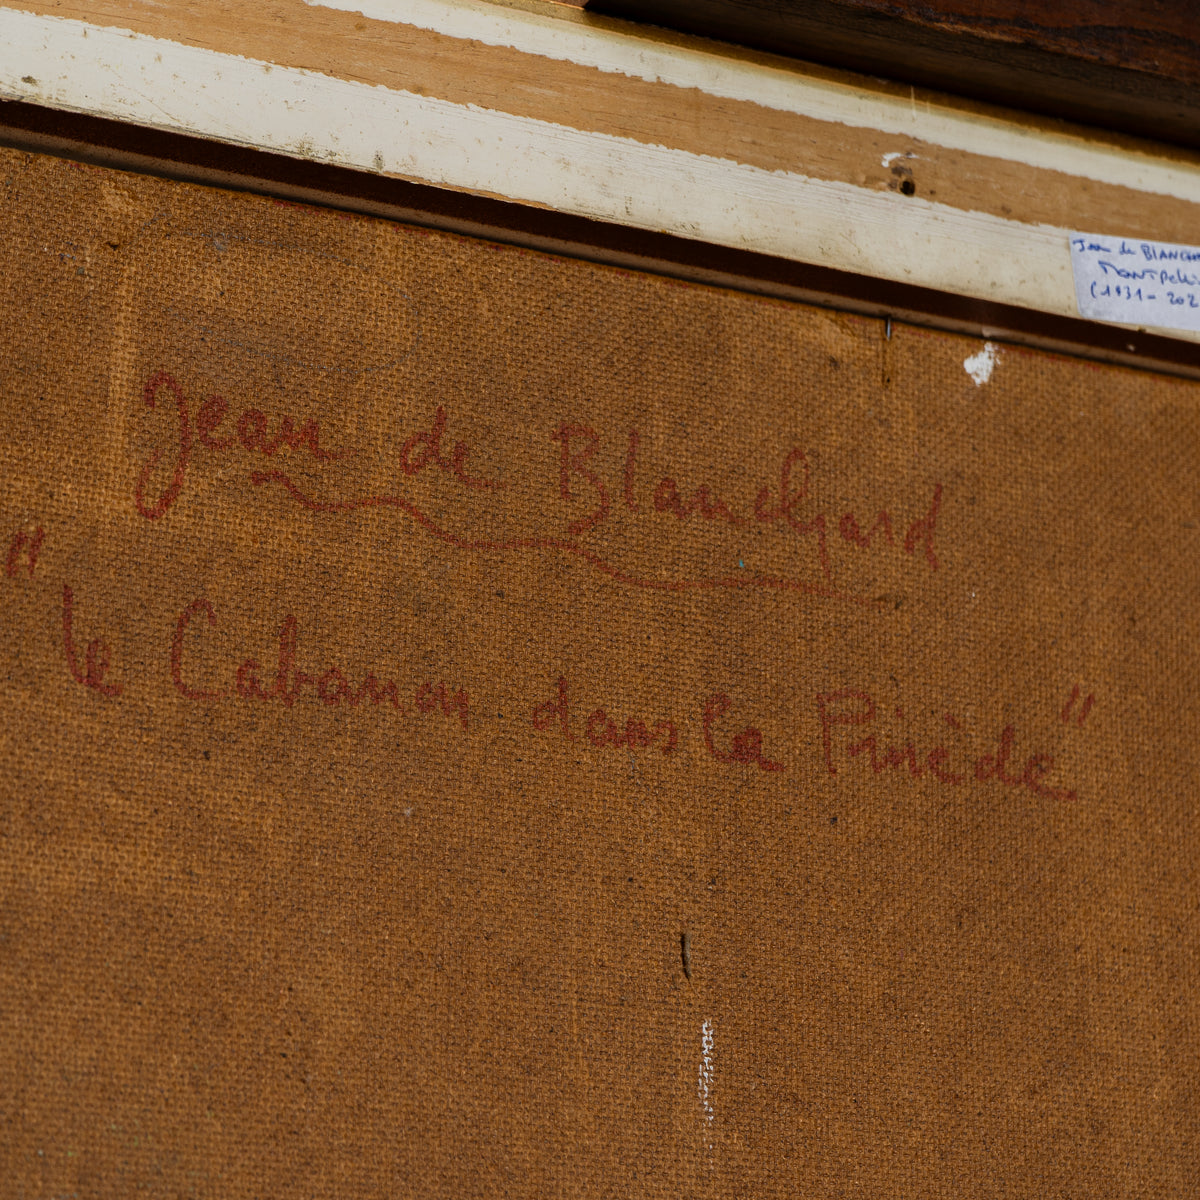 Jean de BLANCH
MONTPelli
(1931- 202
Jean de Blanchard
"le Cabanon dans la Pinède"